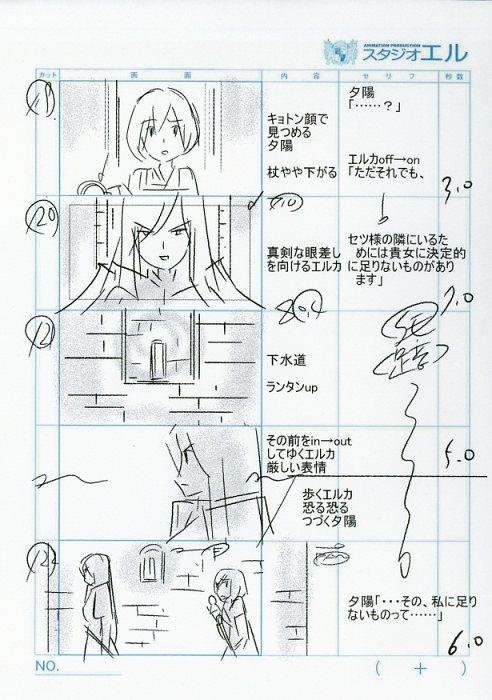 ANIMATION PRODUCTION
スタジオエル
カット 画面 内容 セリフ 秒数
夕陽
「……？」
キョトン顔で
見つめる
夕陽
杖やや下がる
エルカoff→on
「ただそれでも、
3.0
20
真剣な眼差し
を向けるエルカ
セツ様の隣にいるた
めには貴女に決定的
に足りないものがあり
ます」
7.0
下水道
ランタンup
その前をin→out
してゆくエルカ
厳しい表情
5.0
歩くエルカ
恐る恐る
つづく夕陽
夕陽「・・・その、私に足り
ないものって……」
6.0
NO.
( + )